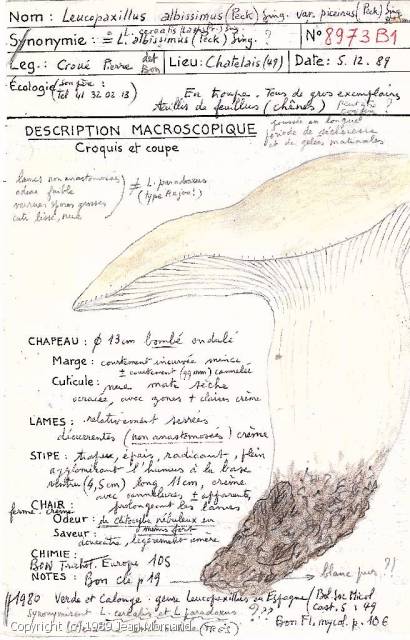 Nom : Leucopaxillus albissimus (Peck) Sing. var. piceinus (Peck) Sing
Synonymie : = L. cerealis (Lasch) Sing
= L. albissimus (Peck) Sing. ?
N° 8973B1
Leg. : Croué Pierre det Bon
Lieu : Chatelais (49)
Date : 5. 12. 89
Ecologie
(Tel 41 32 02 13)
En troupe. Tous de gros exemplaires
feuillus (chênes)
DESCRIPTION MACROSCOPIQUE
Croquis et coupe
poussée en longue
période de sécheresse
et de gelées matinales
lames non anastomosées
odeur faible
verrues spores grosses
cuti lisse, nue
≠ L. paradoxus
(type Anjou !)
CHAPEAU : ϕ 13 cm bombé ondulé
Marge : courtement incurvée mince
± courtement (99mm) cannelée
Cuticule : nue mate sèche
ocracée, avec zones + claires crème
LAMES : relativement serrées
décurrentes (non anastomosées) crème
STIPE : trapu, épais, radicant, plein
agglomérant l'humus à la base
ventru (4,5 cm) long 11 cm, crème
avec cannelures, ± apparentes,
prolongeant les lames
CHAIR : ferme crème
Odeur : de clitocybe nébuleux en
moins fort
Saveur : douceâtre, légèrement amère
CHIMIE :
Bon Trichol. Europe 105
NOTES : Bon clé p 19
blanc pur ??
1980 Verde et Calonge. genre leucopaxillus en Espagne / Bol. Soc Micol
cast. 5 : 49
synonymisent L. cerealis et L. paradoxus ???
Bon Fl. mycol. p. 106
Copyright (c) 1989 Jean Mornand